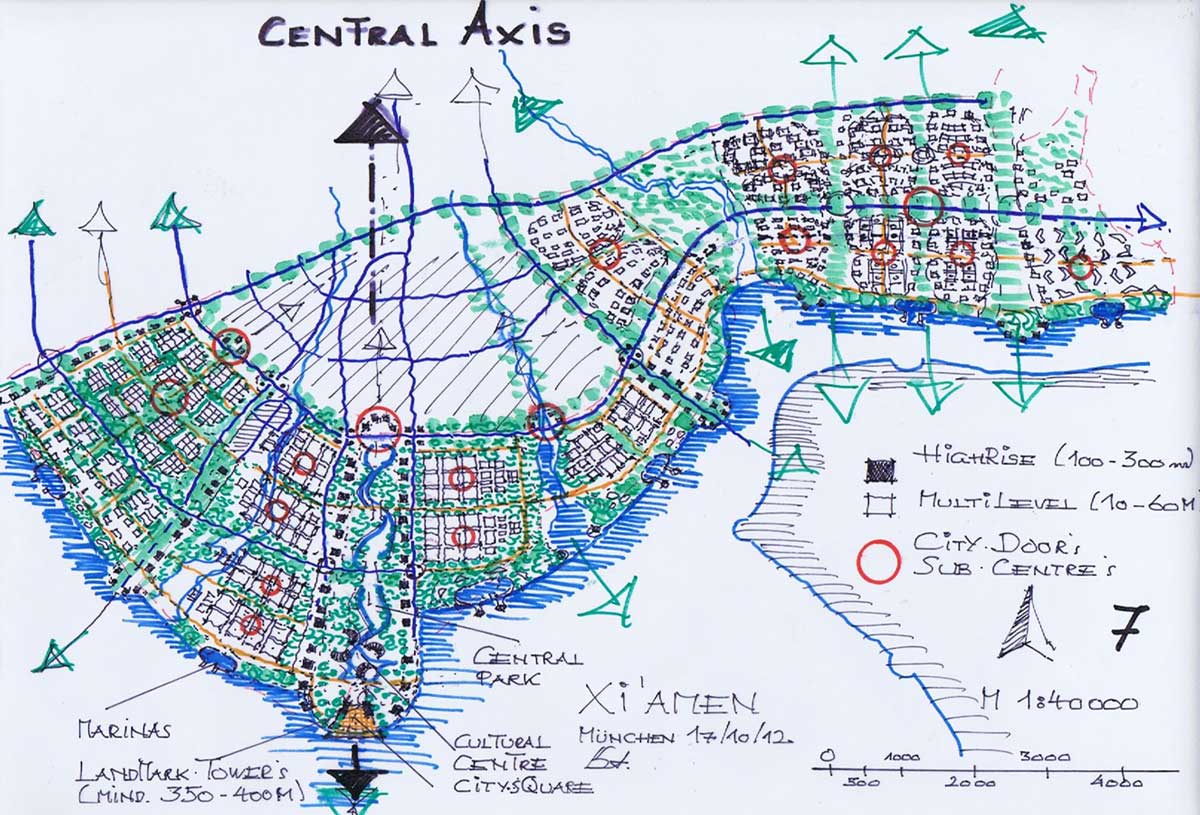 CENTRAL AXIS
HIGHRISE (100-300m)
MULTILEVEL (10-60M
CITY·DOOR'S
SUB·CENTRE'S
7
M 1:40000
CENTRAL
PARK
XI'AMEN
MÜNCHEN 17/10/12.
MARINAS
LANDMARK·TOWER'S
(MIND. 350-400M)
CULTURAL
CENTRE
CITY·SQUARE
0 1000 3000
500 2000 4000